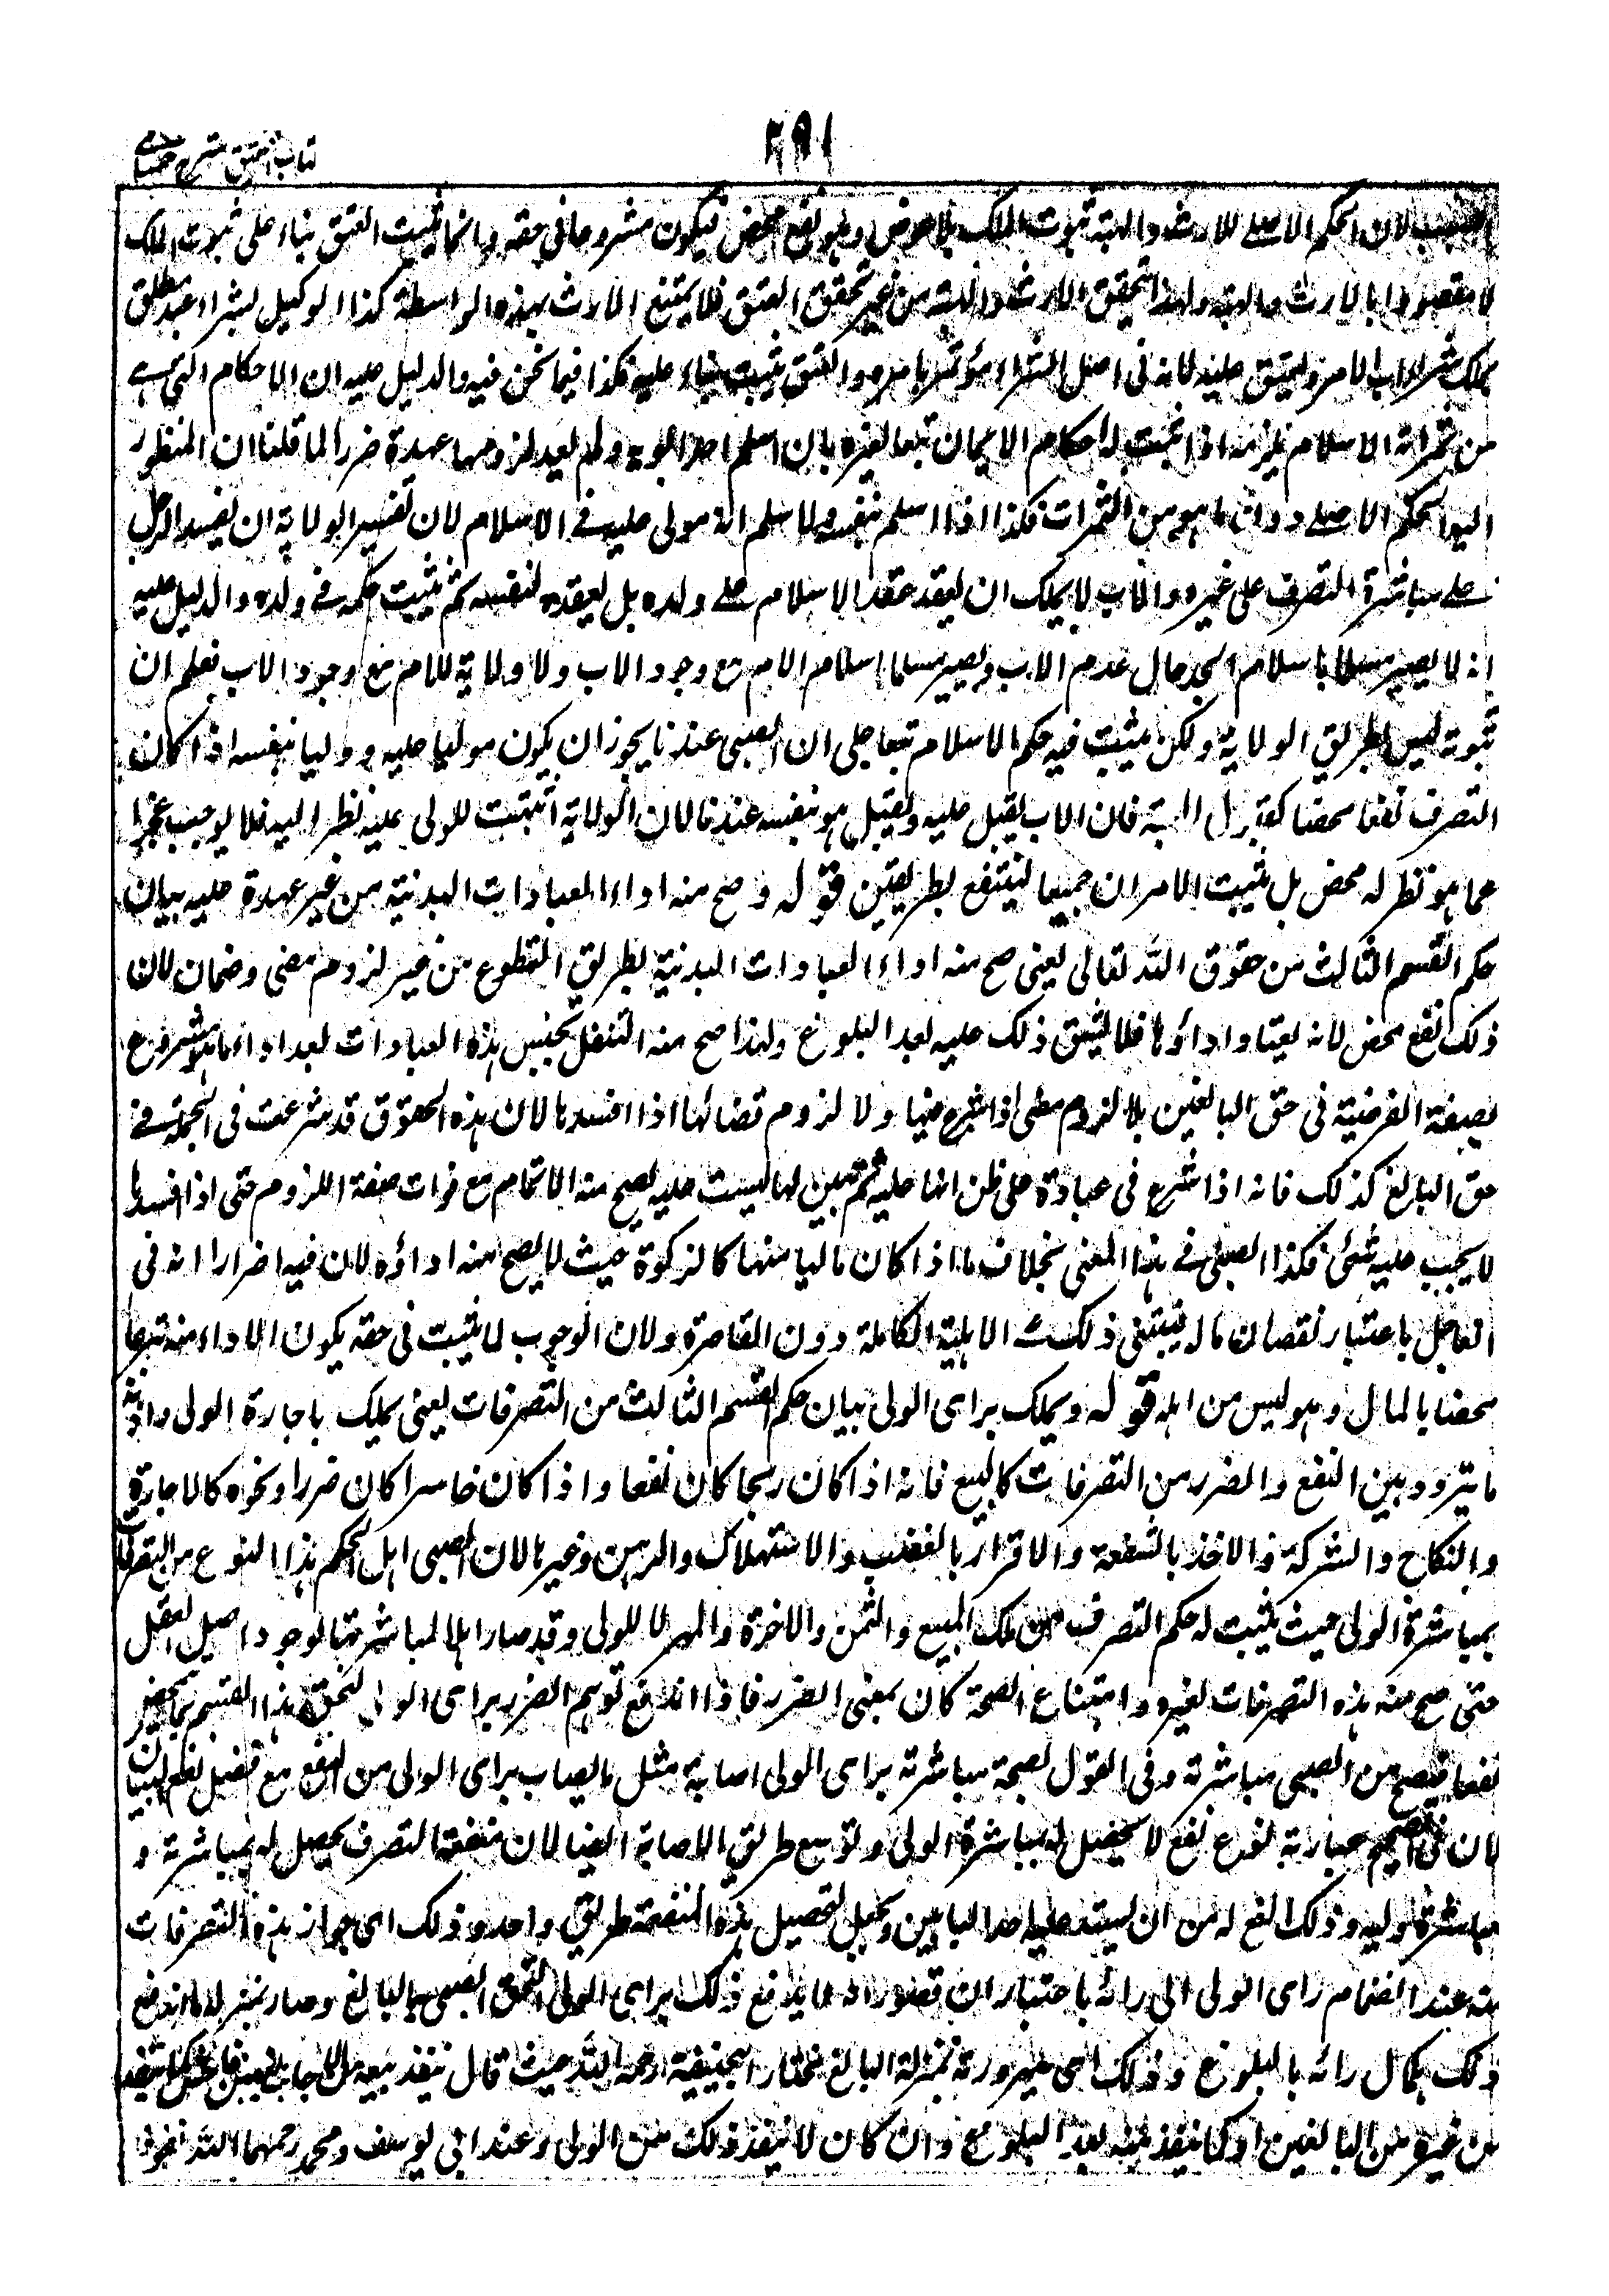 ٢٩١
كتاب التحقيق شرح حسامي
لان الحكم الاصلے للارث والهبة ثبوت الملك بلا عوض وهو نفع محض فيكون مشروعا في حقه وانما يثبت العتق بناء على ثبوت الملك
لا مقصودا بالارث والهبة ولهذا يتحقق الارث والهبة من غير تحقق العتق فلا يمتنع الارث بهذه الواسطة كذا الوكيل بشراء عبد مطلق
يملك شراء اب الامر ويعتق عليه لانه فى اصل الشراء مؤتمر بامره والعتق يثبت بناء عليه فكذا فيما نحن فيه والدليل عليه ان الاحكام التى هے
من ثمراته الاسلام يلزمه اذا ثبت له احكام الايمان تبعا لغيره بان اسلم احد ابويه ولم يعد لزومها عهدة ضررا لما قلنا ان المنظور
اليه الحكم الاصلے دون ما هو من الثمرات فكذا اذا اسلم بنفسه ولا نسلم انه مولى عليه فے الاسلام لان تفسير الولاية ان يصير الرجل
علے مباشرة التصرف على غيره والاب لا يملك ان يعقد عقد الاسلام علے ولده بل يعقده لنفسه ثم يثبت حكمه فے ولده والدليل عليه
انه لا يصير مسلما باسلام الجد حال عدم الاب ويصير مسلما باسلام الام مع وجود الاب ولا ولاية للام مع وجود الاب فعلم ان
ثبوته ليس بطريق الولاية ولكن يثبت فيه حكم الاسلام تبعا على ان الصبى عندنا يجوز ان يكون موليا عليه ووليا بنفسه اذا كان
التصرف نفعا محضا كقبول الهبة فان الاب يقبل عليه ويقبل هو بنفسه عندنا لان الولاية اثبتت للولى عليه نظرا اليه فلا يوجب حجرا
عما هو نظر له محض بل يثبت الامران جميعا لينتفع بطريقين قوله وصح منه اداء العبادات البدنية من غير عهدة عليه بيان
حكم القسم الثالث من حقوق الله تعالى يعنى صح منه اداء العبادات البدنية بطريق التطوع من غير لزوم مضى وضمان لان
ذلك نفع محض لانه يعتاد اداؤها فلا يشق ذلك عليه بعد البلوغ ولهذا صح منه التنفل بجنس هذه العبادات بعد اداء ما هو مشروع
بصفة الفرضية فى حق البالغين بلا لزوم مضى اذا شرع فيها ولا لزوم قضائها اذا افسدها لان هذه الحقوق قد شرعت فى الجملة فے
حق البالغ كذلك فانه اذا شرع فى عبادة على ظن انها عليه ثم تبين انها ليست عليه يصح منه الاتمام مع فوات صفة اللزوم حتى اذا افسدها
لا يجب عليه شئ فكذا الصبى فے هذا المعنى بخلاف ما اذا كان ماليا منها كالزكوة حيث لا يصح منه اداؤه لان فيه اضرارا انه فى
العاجل باعتبار نقصان ماله فيبتنى ذلك على الاهلية الكاملة دون القاصرة ولان الوجوب لما يثبت فى حقه يكون الاداء منه تبرعا
محضا بالمال وهو ليس من اهله قوله ويملك براى الولى بيان حكم القسم الثالث من التصرفات يعنى يملك باجازة الولى واذنه
ما يتردد بين النفع والضرر من التصرفات كالبيع فانه اذا كان ربحا كان نفعا واذا كان خاسرا كان ضررا ونحوه كالاجارة
والنكاح والشركة والاخذ بالشفعة والاقرار بالغصب والاستهلاك والرهن وغيرها لان الصبى اهل لحكم هذا النوع من التصرفات
بمباشرة الولى حيث يثبت له حكم التصرف من ملك المبيع والثمن والاجرة والمهر لا للولى وقد صار اهلا لمباشرتها لوجود اصل العقل
حتى صح منه هذه التصرفات لغيره وامتناع الصحة كان بمعنى الضرر فاذا اندفع توهم الضرر براى الولى التحق هذا القسم بما يتمحض
نفعا فيصح من الصبى مباشرته وفى القول بصحة مباشرته براى الولى اصابة مثل ما يصاب براى الولى من النفع مع فضل نفع البيان
لان فى تصحيح عبارته نوع نفع لا يحصل له بمباشرة الولى وتوسيع طريق الاصابة ايضا لان منفعة التصرف يحصل له بمباشرته و
مباشرة وليه وذلك انفع له من ان يستد عليه احد البابين ويجعل لتحصيل هذه المنفعة طريق واحد وذلك اى جواز هذه التصرفات
منه عند انضمام راى الولى الى رائه باعتبار ان قصور رائه لما يندفع ذلك براى الولى التحق الصبى بالبالغ وصار بمنزلة ما اذا اندفع
ذلك بكمال رائه بالبلوغ وذلك اى صيرورته بمنزلة البالغ مختار ابى حنيفة رحمه الله حيث قال ينفذ بيعه من الاجانب بغبن فاحش كما ينفذ
من غيره من البالغين او كما ينفذ منه بعد البلوغ وان كان لا ينفذ ذلك من الولى وعند ابى يوسف ومحمد رحمهما الله